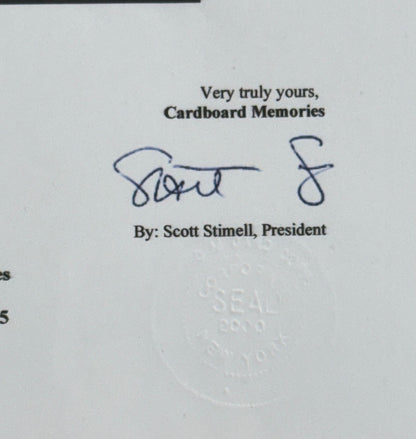 Very truly yours,
Cardboard Memories
Scott S
By: Scott Stimell, President
es
5
SEAL
2000
NEW YORK